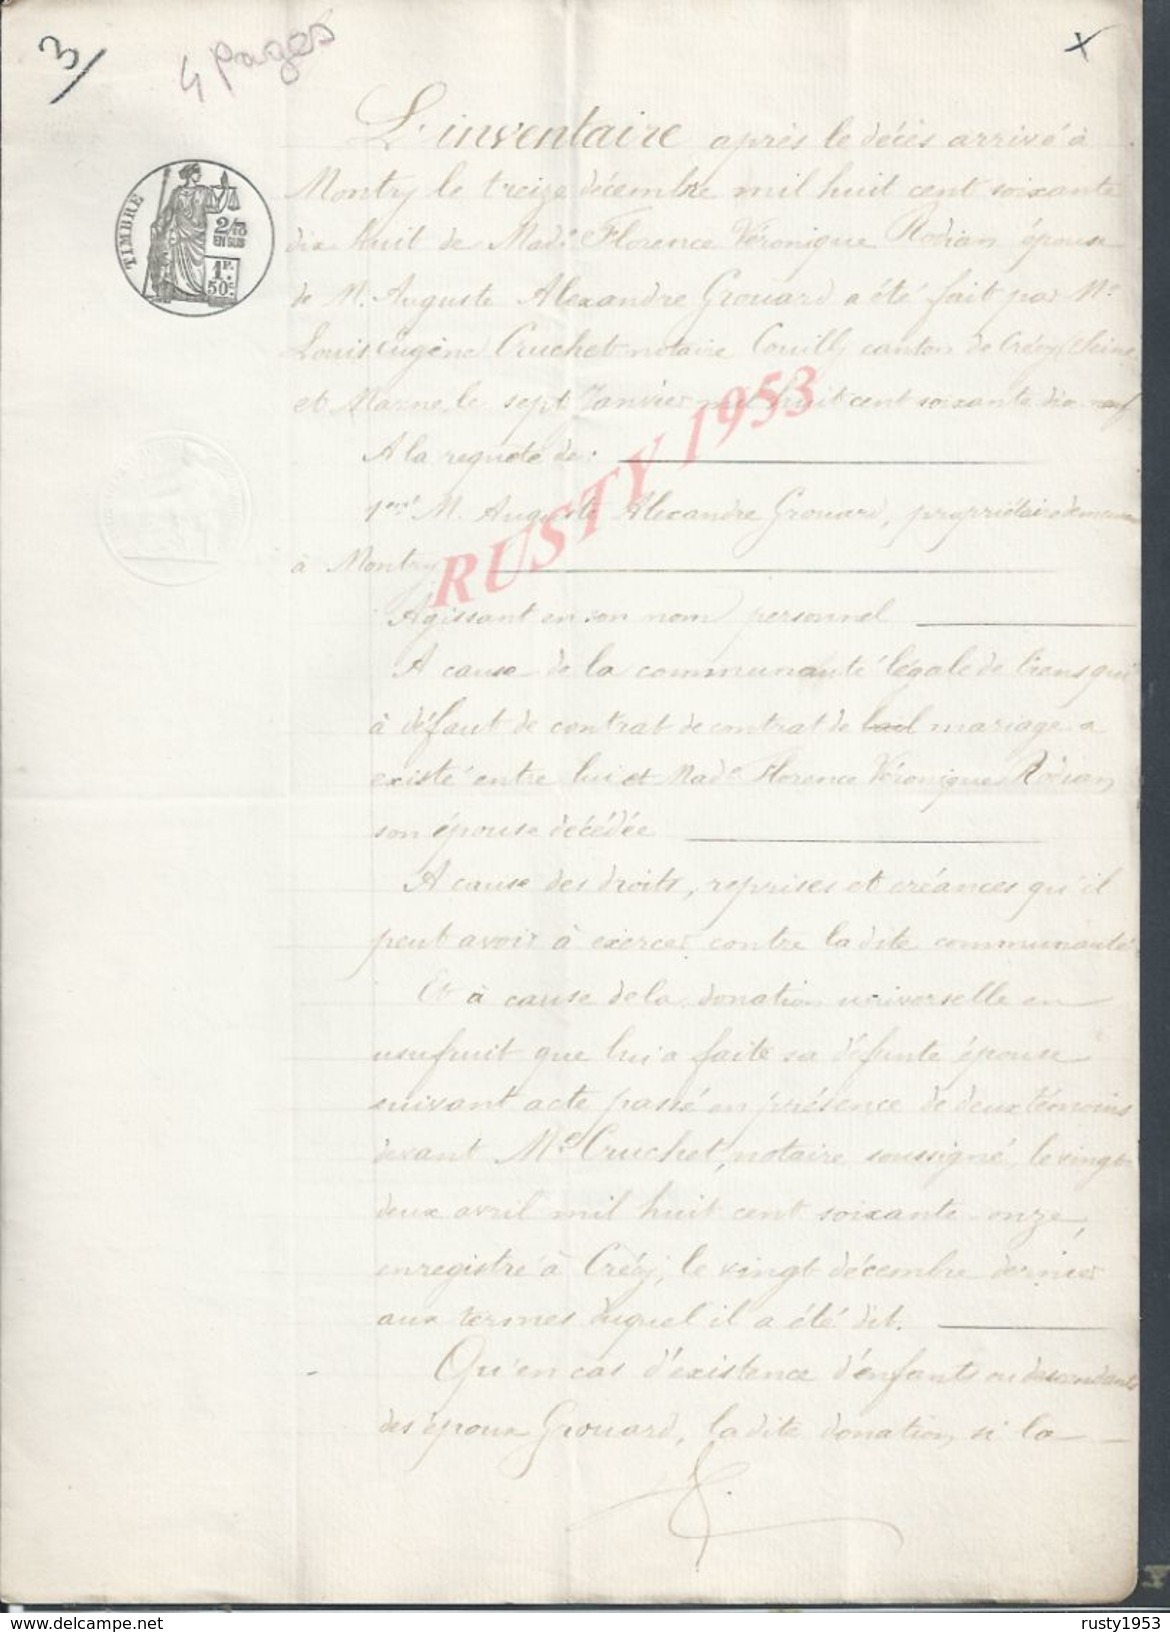 3/
4 pages
x
TIMBRE
2/10
EN SUS
1F.
50c.
L'inventaire après le décès arrivé à
Montry le treize décembre mil huit cent soixante
dix huit de Made Florence Véronique Rodian épouse
de M. Auguste Alexandre Grouard a été fait par Me
Louis Eugène Cruchet notaire Couilly canton de Crécy (Seine
et Marne, le sept Janvier mil huit cent soixante dix neuf
A la requête de :
M. Auguste Alexandre Grouard, propriétaire demeurant
à Montry
Agissant en son nom personnel
A cause de la communauté légale de biens qui
à défaut de contrat de contrat de bail mariage a
existé entre lui et Made Florence Véronique Rodian
son épouse décédée
A cause des droits, reprises et créances qu'il
peut avoir à exercer contre la dite communauté
Et à cause de la donation universelle en
usufruit que lui a faite sa défunte épouse
suivant acte passé en présence de deux témoins
devant Me Cruchet, notaire soussigné, le vingt
deux avril mil huit cent soixante onze,
enregistré à Crécy, le vingt décembre dernier
aux termes duquel il a été dit.
Qu'en cas d'existence d'enfants ou descendants
des époux Grouard, la dite donation, si la
RUSTY 1953
www.delcampe.net
rusty1953